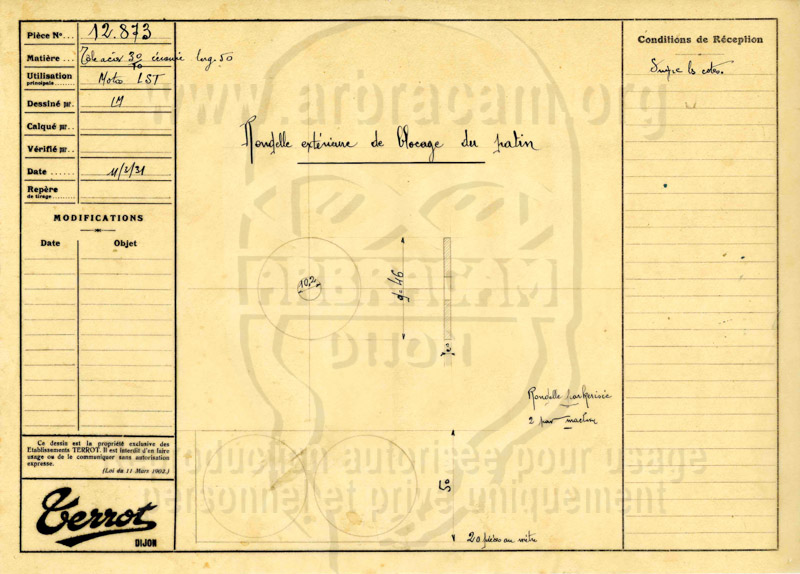 Pièce N°... 12.873
Matière .. Tôle acier 30/10 larg. 50
Utilisation
principale..... Moto LST
Dessiné par. LM
Calqué par .
Vérifié par..
Date ...... 11/2/31
Repère
de tirage........
MODIFICATIONS
Date Objet
Ce dessin est la propriété exclusive des
Etablissements TERROT. Il est interdit d'en faire
usage ou de le communiquer sans autorisation
expresse.
(Loi du 11 Mars 1902.)
Terrot
DIJON
www.arbracam.org
Rondelle extérieure de blocage du patin
10,2
d=46
3
ARBRACAM
DIJON
Rondelle parkerisée
2 par machine
50
20 pièces au mètre
Reproduction autorisée pour usage
personnel et privé uniquement
Conditions de Réception
Suivre les cotes.